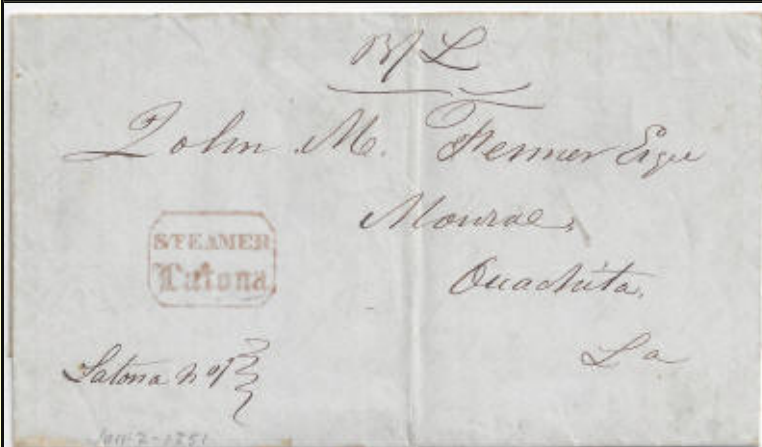 B/L
John M. Fenner Esqu
Monroe,
Ouachita,
La
STEAMER
Latona.
Latona no 1
Jany 2-1851